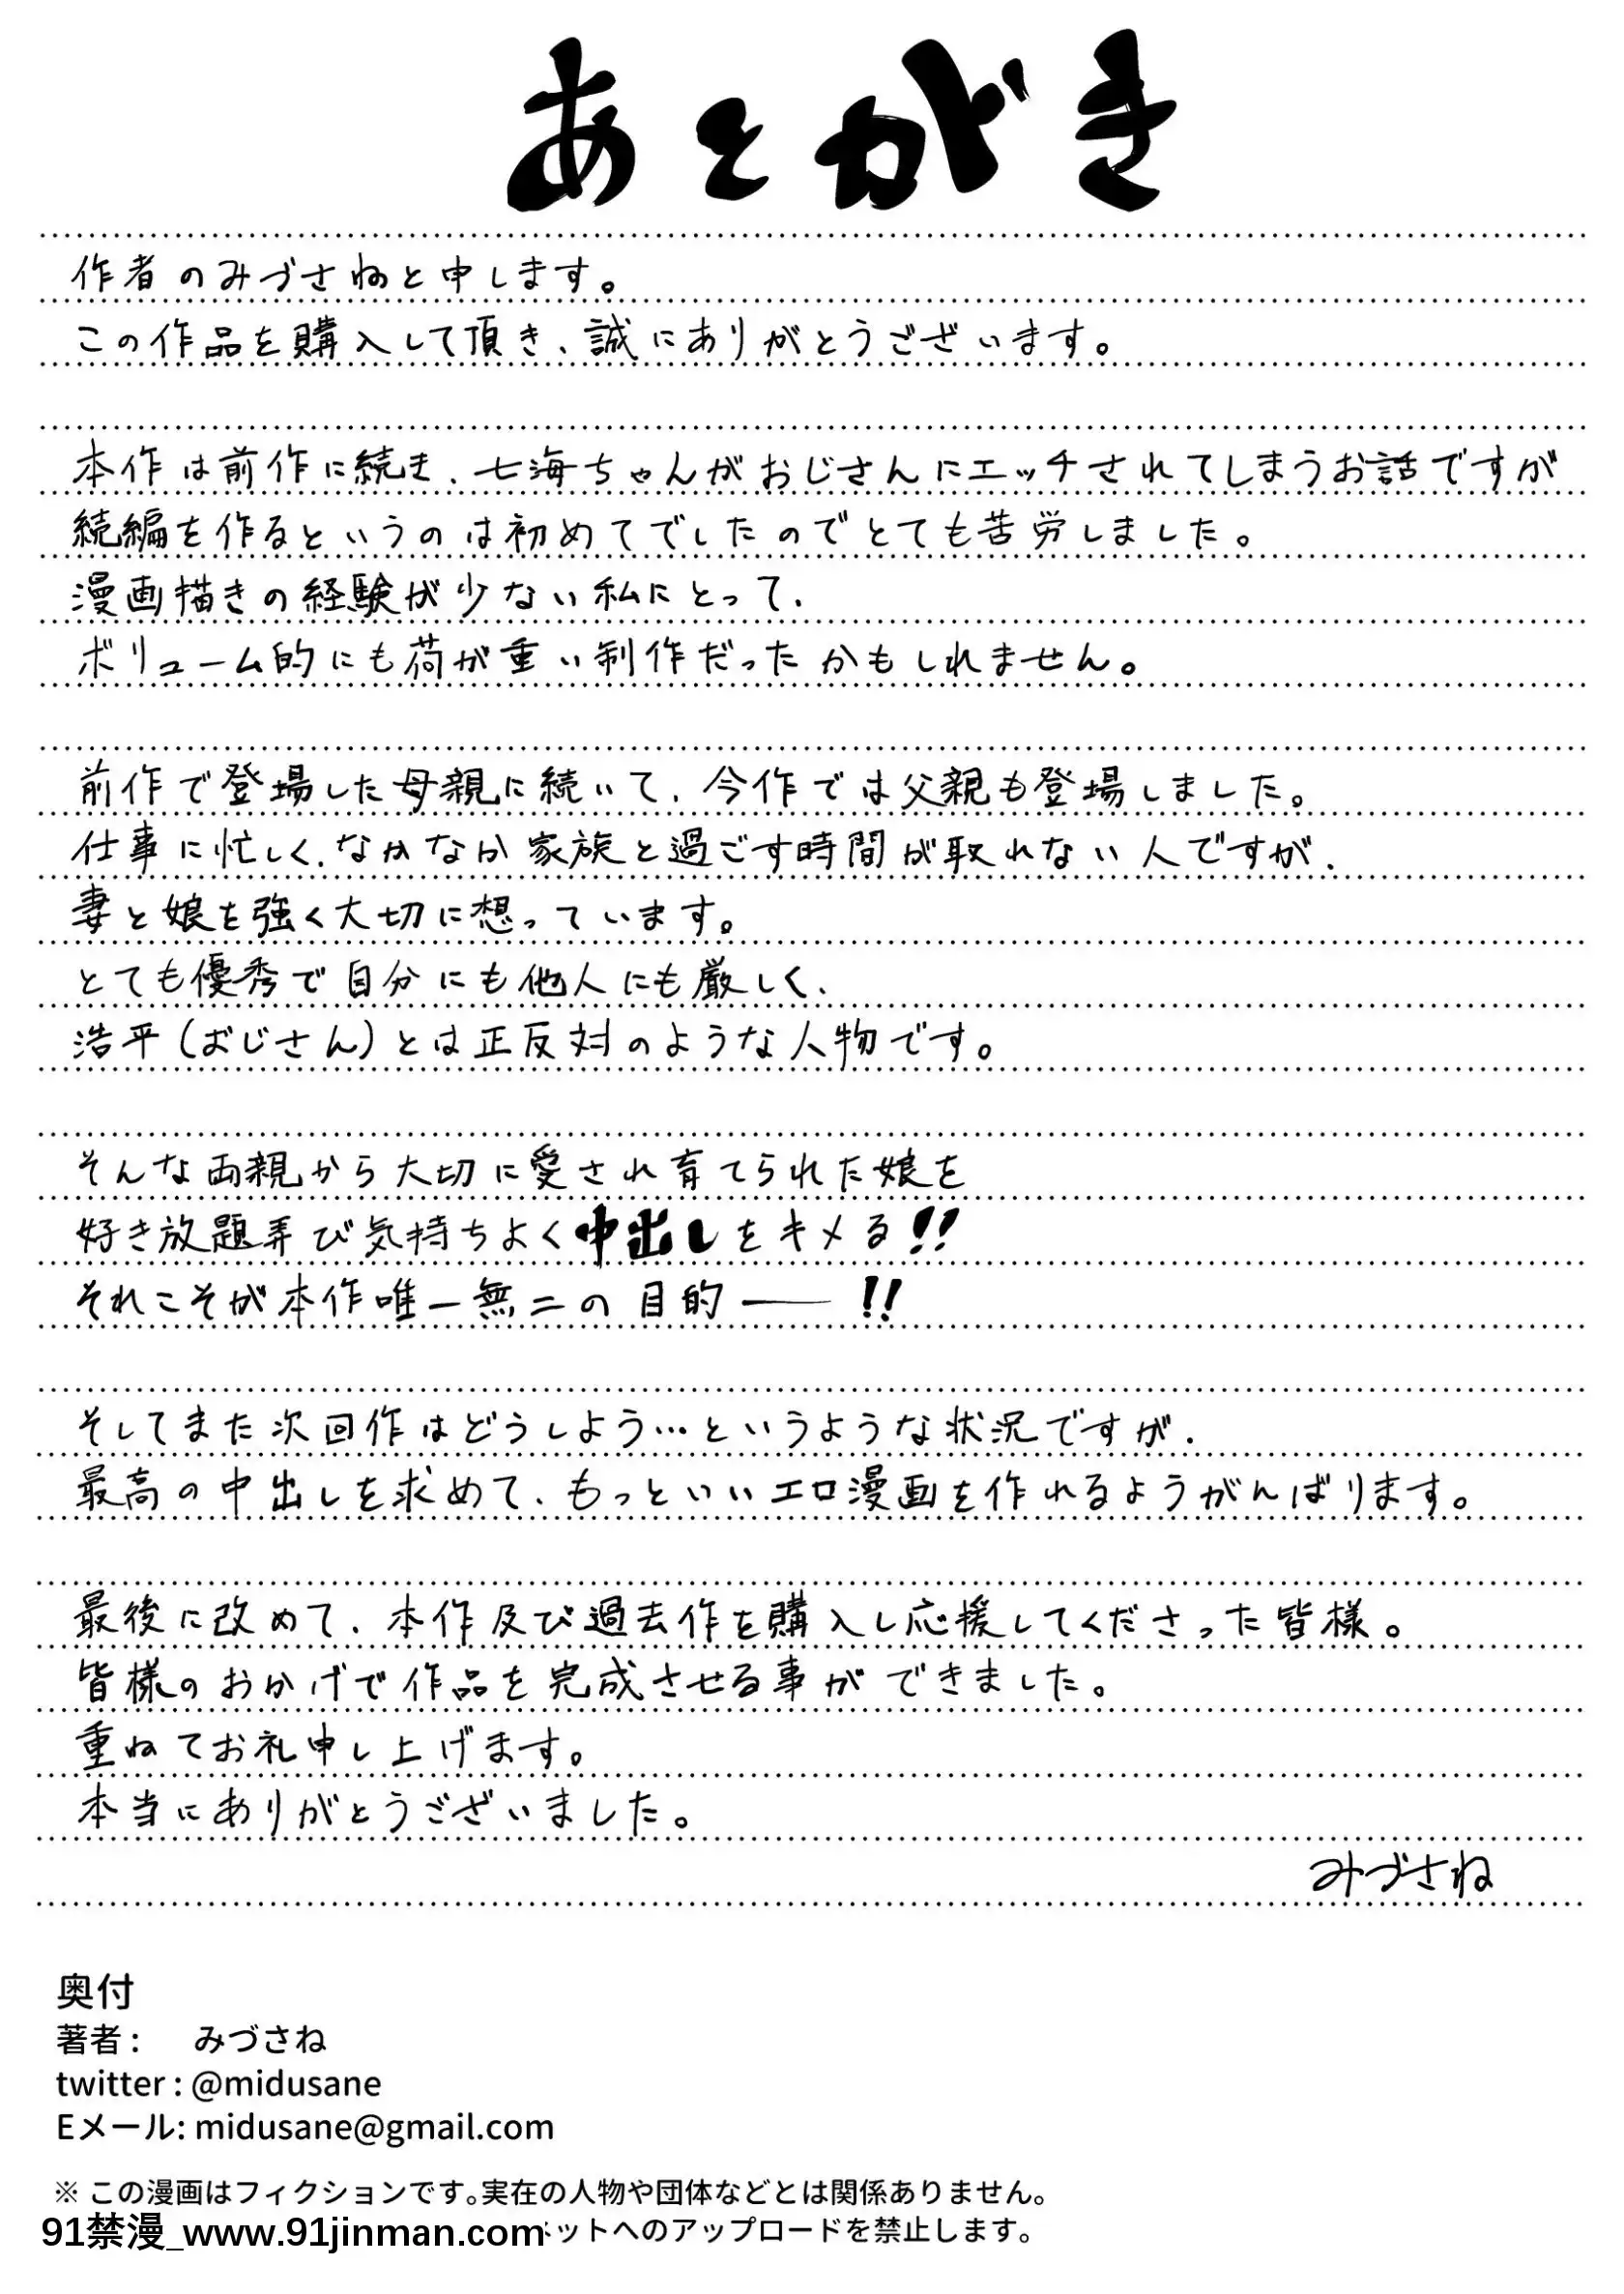 あとがき
作者のみづさねと申します。
この作品を購入して頂き、誠にありがとうございます。
本作は前作に続き、七海ちゃんがおじさんにエッチされてしまうお話ですが
続編を作るというのは初めてでしたのでとても苦労しました。
漫画描きの経験が少ない私にとって、
ボリューム的にも荷が重い制作だったかもしれません。
前作で登場した母親に続いて、今作では父親も登場しました。
仕事に忙しく、なかなか家族と過ごす時間が取れない人ですが、
妻と娘を強く大切に想っています。
とても優秀で自分にも他人にも厳しく、
浩平(おじさん)とは正反対のような人物です。
そんな両親から大切に愛され育てられた娘を
好き放題弄び気持ちよく中出しをキメる!!
それこそが本作唯一無二の目的――!!
そしてまた次回作はどうしよう…というような状況ですが、
最高の中出しを求めて、もっといいエロ漫画を作れるようがんばります。
最後に改めて、本作及び過去作を購入し応援してくださった皆様。
皆様のおかげで作品を完成させる事ができました。
重ねてお礼申し上げます。
本当にありがとうございました。
みづさね
奥付
著者 : みづさね
twitter : @midusane
Eメール: midusane@gmail.com
※ この漫画はフィクションです。実在の人物や団体などとは関係ありません。
91禁漫_www.91jinman.comネットへのアップロードを禁止します。